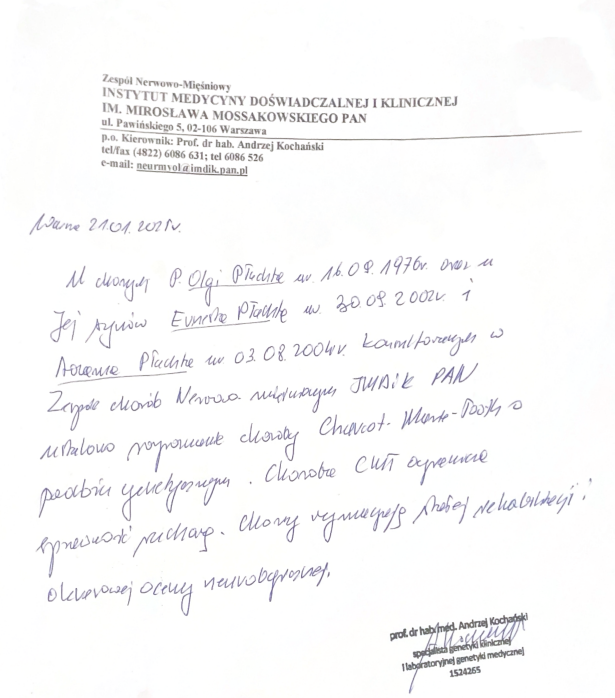 Zespół Nerwowo-Mięśniowy
INSTYTUT MEDYCYNY DOŚWIADCZALNEJ I KLINICZNEJ
IM. MIROSŁAWA MOSSAKOWSKIEGO PAN
ul. Pawińskiego 5, 02-106 Warszawa
p.o. Kierownik: Prof. dr hab. Andrzej Kochański
tel/fax (4822) 6086 631; tel 6086 526
e-mail: neurmyol@imdik.pan.pl
21.01.2021r.
U chorych P. Olgi Płachta ur. 16.09.1976r. oraz u
Jej synów Płachta ur. 30.09.2002r. i
Płachta ur 03.08.2004r. konsultowanych w
Zespole chorób Nerwowo mięśniowych IMDiK PAN
ustalono rozpoznanie choroby Charcot-Marie-Tooth o
podłożu genetycznym. Choroba CMT ogranicza
sprawność ruchową. Chorzy wymagają stałej rehabilitacji i
okresowej oceny neurologicznej.
prof. dr hab. med. Andrzej Kochański
specjalista genetyki klinicznej
i laboratoryjnej genetyki medycznej
1524265